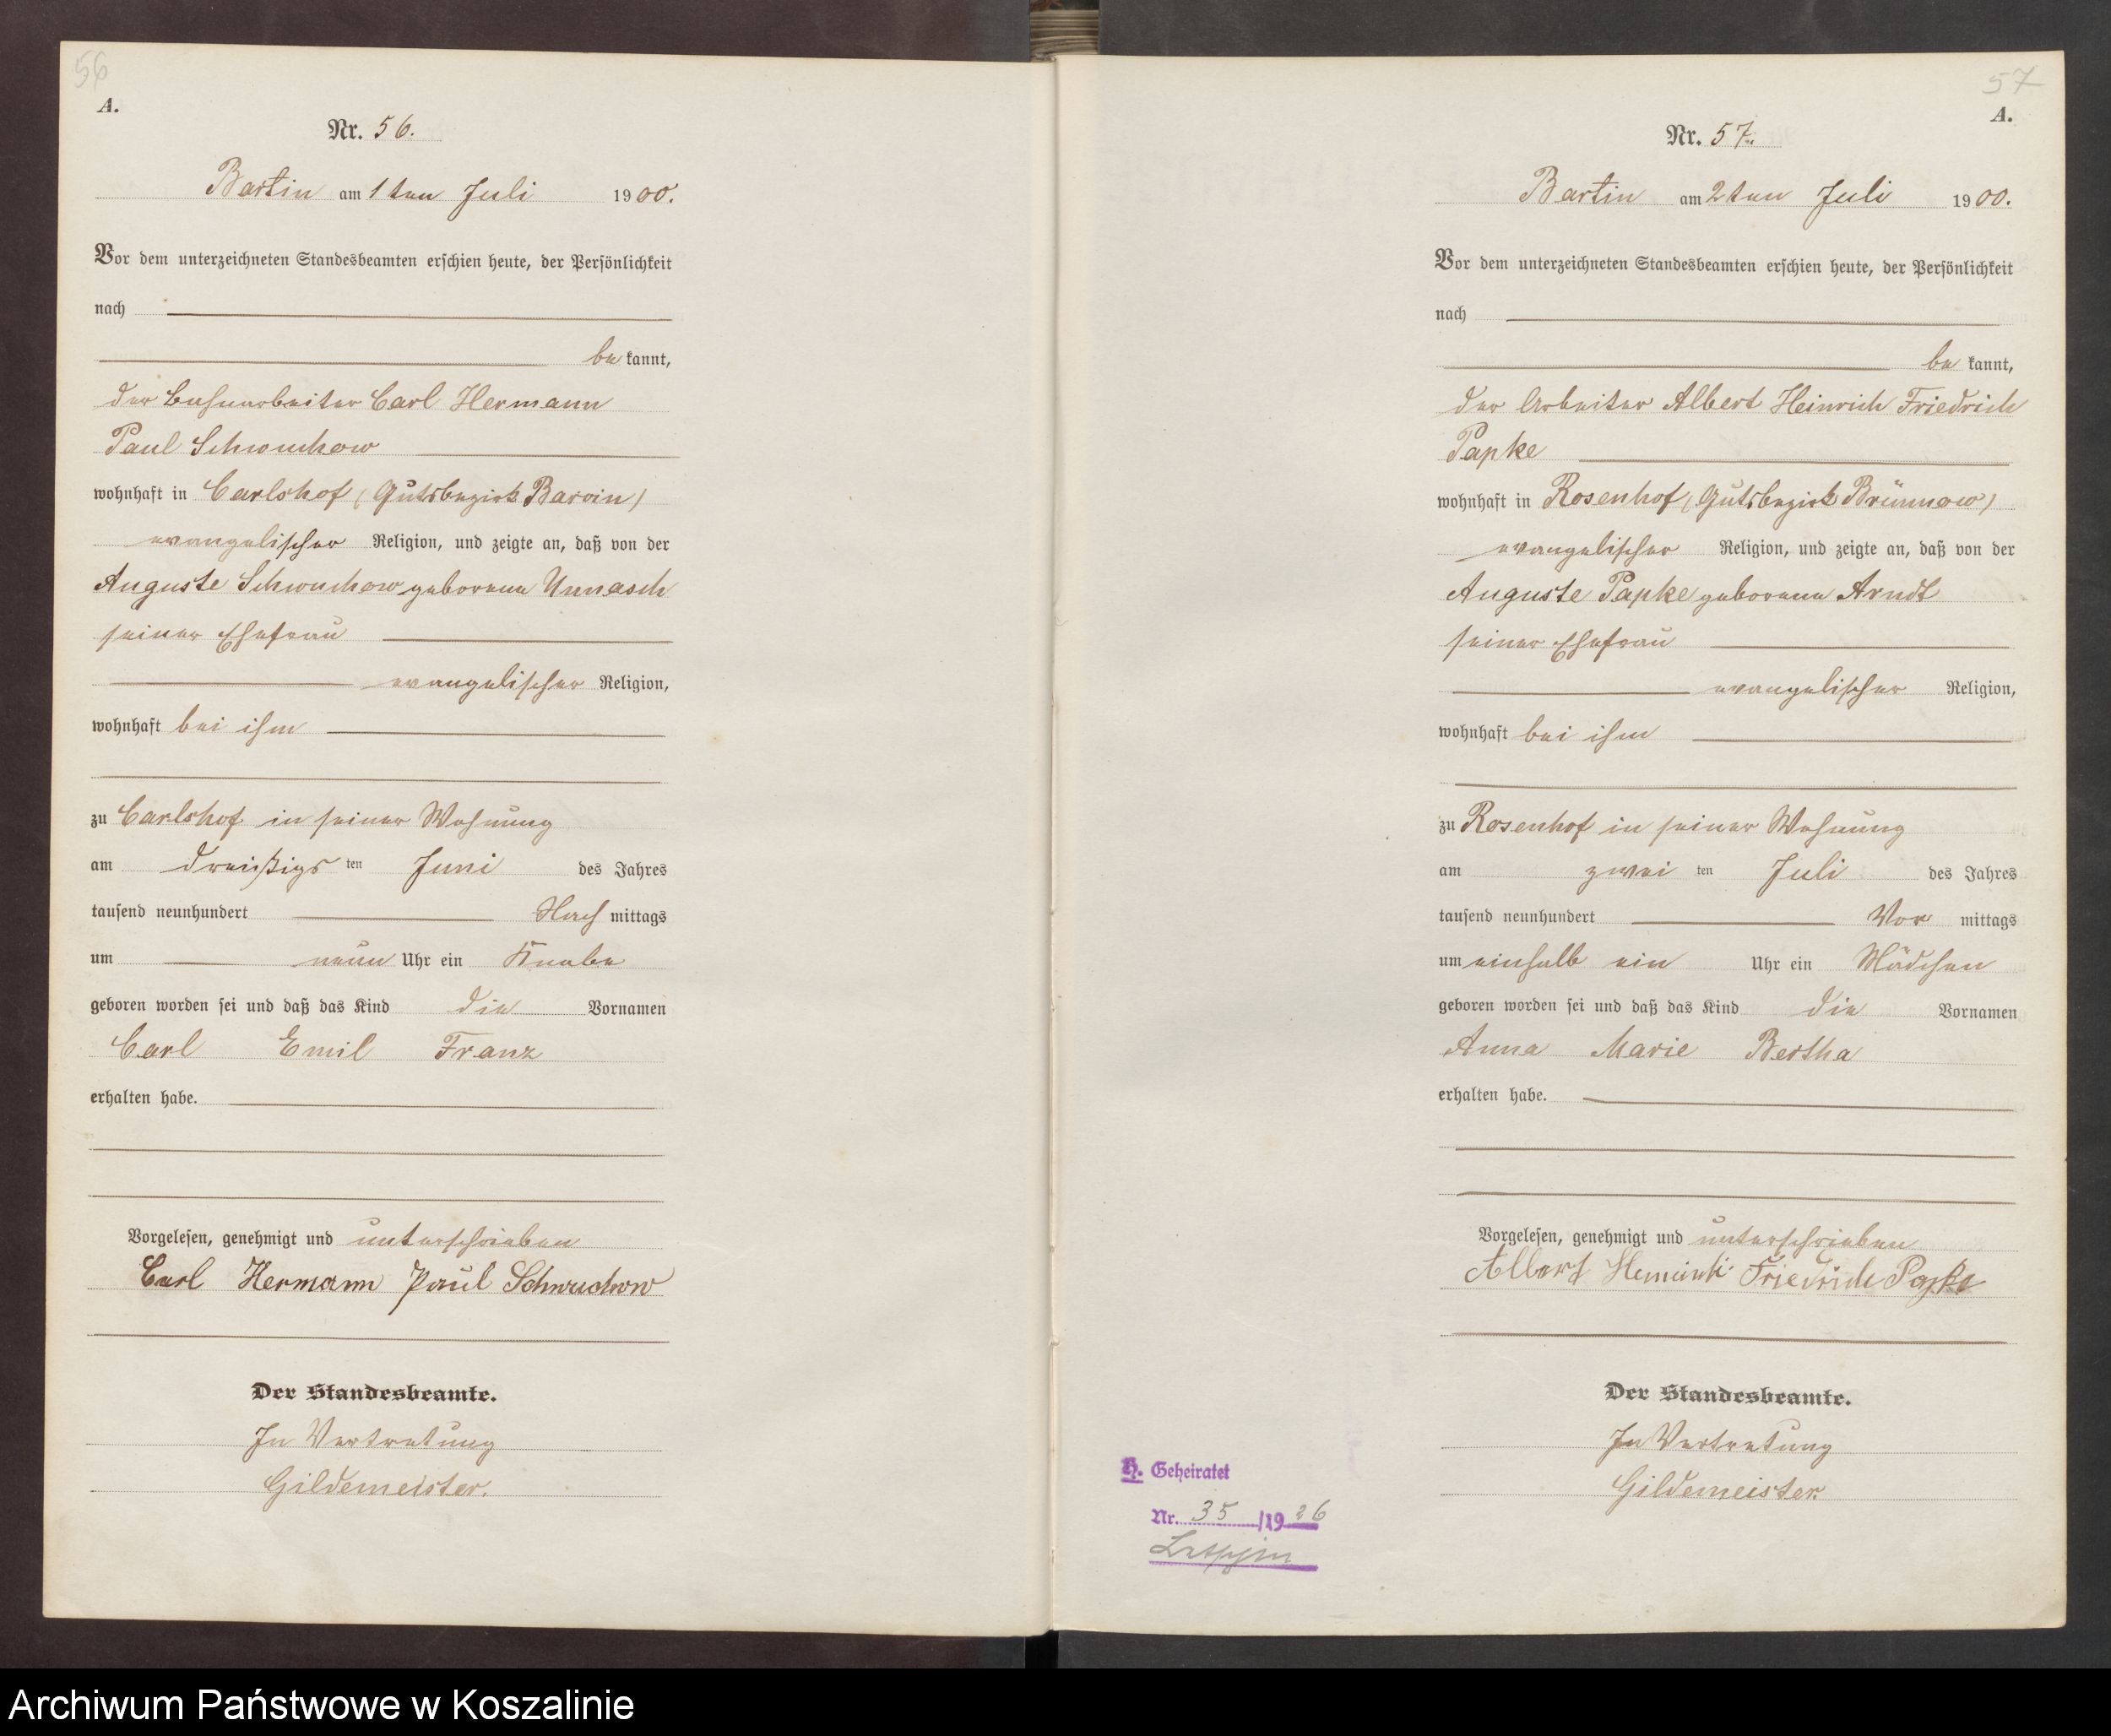 56
A.
Nr. 56.
Bartin am 1ten Juli 1900.
Vor dem unterzeichneten Standesbeamten erschien heute, der Persönlichkeit
nach
be kannt,
der Bahnarbeiter Carl Hermann
Paul Schwuchow
wohnhaft in Carlshof (Gutsbezirk Barvin)
evangelischer Religion, und zeigte an, daß von der
Auguste Schwuchow geborene Unnasch
seiner Ehefrau
evangelischer Religion,
wohnhaft bei ihm
zu Carlshof in seiner Wohnung
am dreißigs ten Juni des Jahres
tausend neunhundert Nach mittags
um neun Uhr ein Knabe
geboren worden sei und daß das Kind die Vornamen
Carl Emil Franz
erhalten habe.
Vorgelesen, genehmigt und unterschrieben
Carl Hermann Paul Schwuchow
Der Standesbeamte.
In Vertretung
Gildemeister.
57
A.
Nr. 57.
Bartin am 2ten Juli 1900.
Vor dem unterzeichneten Standesbeamten erschien heute, der Persönlichkeit
nach
be kannt,
der Arbeiter Albert Heinrich Friedrich
Papke
wohnhaft in Rosenhof (Gutsbezirk Brünnow)
evangelischer Religion, und zeigte an, daß von der
Auguste Papke geborene Arndt
seiner Ehefrau
evangelischer Religion,
wohnhaft bei ihm
zu Rosenhof in seiner Wohnung
am zwei ten Juli des Jahres
tausend neunhundert Vor mittags
um einhalb ein Uhr ein Mädchen
geboren worden sei und daß das Kind die Vornamen
Anna Marie Bertha
erhalten habe.
Vorgelesen, genehmigt und unterschrieben
Albert Heinrich Friedrich Papke
Der Standesbeamte.
In Vertretung
Gildemeister.
H. Geheiratet
Nr. 35 /1926
Archiwum Państwowe w Koszalinie